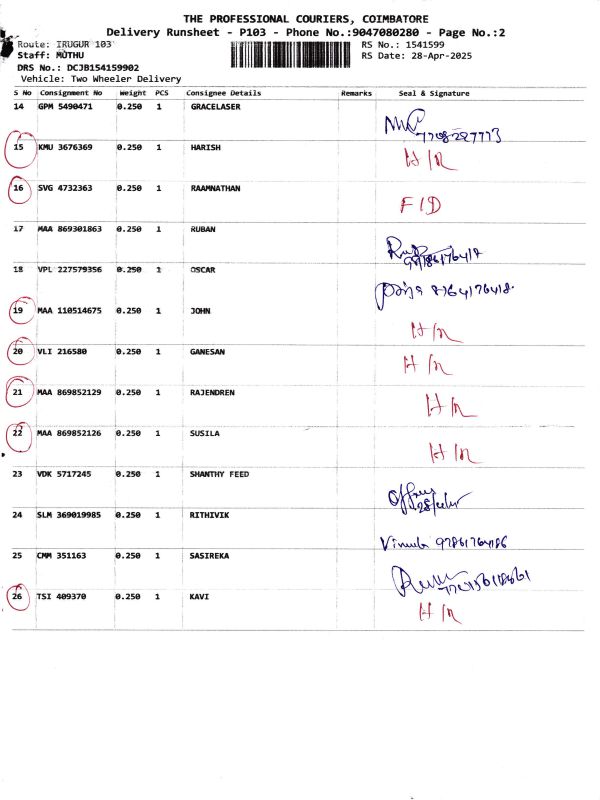 THE PROFESSIONAL COURIERS, COIMBATORE
Delivery Runsheet - P103 - Phone No.:9047080280 - Page No.:2
Route: IRUGUR 103 RS No.: 1541599
Staff: MUTHU RS Date: 28-Apr-2025
DRS No.: DCJB154159902
Vehicle: Two Wheeler Delivery
S No Consignment No Weight PCS Consignee Details Remarks Seal & Signature
14 GPM 5490471 0.250 1 GRACELASER
7708227773
15 KMU 3676369 0.250 1 HARISH H/R
16 SVG 4732363 0.250 1 RAAMNATHAN F/D
17 MAA 869301863 0.250 1 RUBAN
18 VPL 227579356 0.250 1 OSCAR
19 MAA 110514675 0.250 1 JOHN H/R
20 VLI 216580 0.250 1 GANESAN H/R
21 MAA 869852129 0.250 1 RAJENDREN H/R
22 MAA 869852126 0.250 1 SUSILA H/R
23 VDK 5717245 0.250 1 SHANTHY FEED
24 SLM 369019985 0.250 1 RITHIVIK
25 CMM 351163 0.250 1 SASIREKA
26 TSI 409370 0.250 1 KAVI H/R